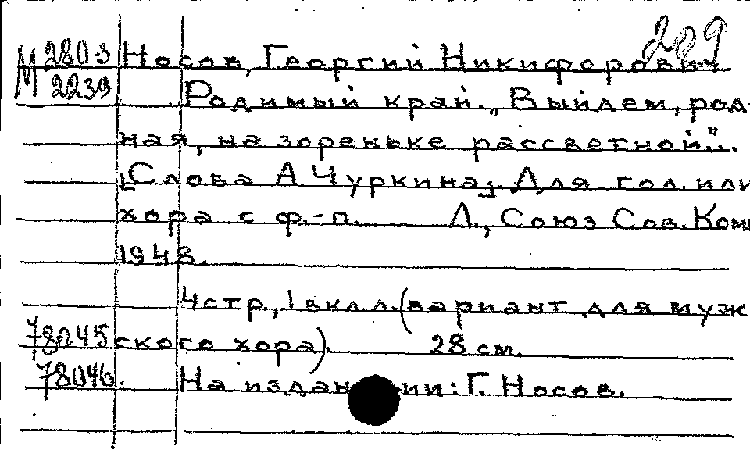 289
М 2803 Носов, Георгий Никифорович
2239 Родимый край. „Выйдем, род-
ная, на зореньке рассветной".
[Слова А Чуркина]. Для гол. или
хора с ф.-п. Л., Союз Сов. Комп
1948.
4 стр., 1 вкл. л. (вариант для муж
78045 ского хора). 28 см.
78046. На издании: Г. Носов.